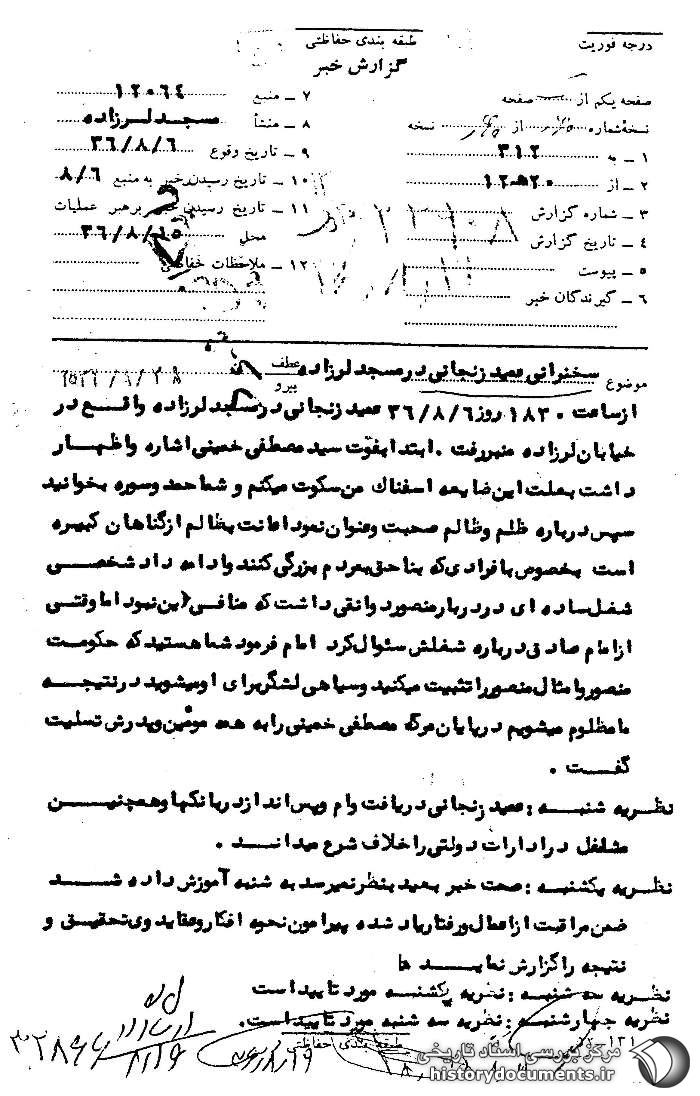 درجه فوریت
طبقه بندی حفاظتی
گزارش خبر
صفحه یکم از صفحه
نسخه شماره از نسخه
۱ – به ۳۱۲
۲ – از ۱۲ ۲۰
۳ – شماره گزارش
۴ – تاریخ گزارش
۵ – پیوست
۶ – گیرندگان خبر
۷ – منبع ۱۲۰۶۴
۸ – منشأ مسجد لرزاده
۹ – تاریخ وقوع ۳۶/۸/۶
۱۰ – تاریخ رسیدن خبر به منبع ۸/۶
۱۱ – تاریخ رسیدن خبر برهبر عملیات
محل ۳۶/۸/۱۵
۱۲ – ملاحظات حفاظتی
موضوع سخنرانی عمید زنجانی در مسجد لرزاده عطف
پیرو
از ساعت ۱۸۳۰ روز ۳۶/۸/۶ عمید زنجانی در مسجد لرزاده واقع در
خیابان لرزاده منبر رفت . ابتدا بفوت سید مصطفی خمینی اشاره و اظهار
داشت بعلت این ضایعه اسفناک من سکوت میکنم و شما حمد و سوره بخوانید
سپس درباره ظلم و ظالم صحبت و عنوان نمود اعانت بظالم از گناهان کبیره
است بخصوص با فرادی که بنا حق بمردم بزرگی کنند و ادامه داد شخصی
شغل ساده ای در دربار منصور دوانقی داشت که منافی دین نبود اما وقتی
از امام صادق درباره شغلش سئوال کرد امام فرمود شما هستید که حکومت
منصور و امثال منصور را تثبیت میکنید و سیاهی لشگر برای او میشوید در نتیجه
ما مظلوم میشویم در پایان مرگ مصطفی خمینی را به همه مومنین و پدرش تسلیت
گفت .
نظریه شنبه : عمید زنجانی دریافت وام و پس انداز در بانکها و همچنین
مشاغل در ادارات دولتی را خلاف شرع میداند .
نظریه یکشنبه : صحت خبر بعید بنظر نمیرسد به شنبه آموزش داده شد
ضمن مراقبت از اعمال و رفتار یاد شده پیرامون نحوه افکار و عقاید وی تحقیق و
نتیجه را گزارش نماید
نظریه سه شنبه : نظریه یکشنبه مورد تایید است
نظریه چهارشنبه : نظریه سه شنبه مورد تایید است.
طبقه بندی حفاظتی
مرکز بررسی اسناد تاریخی
historydocuments.ir